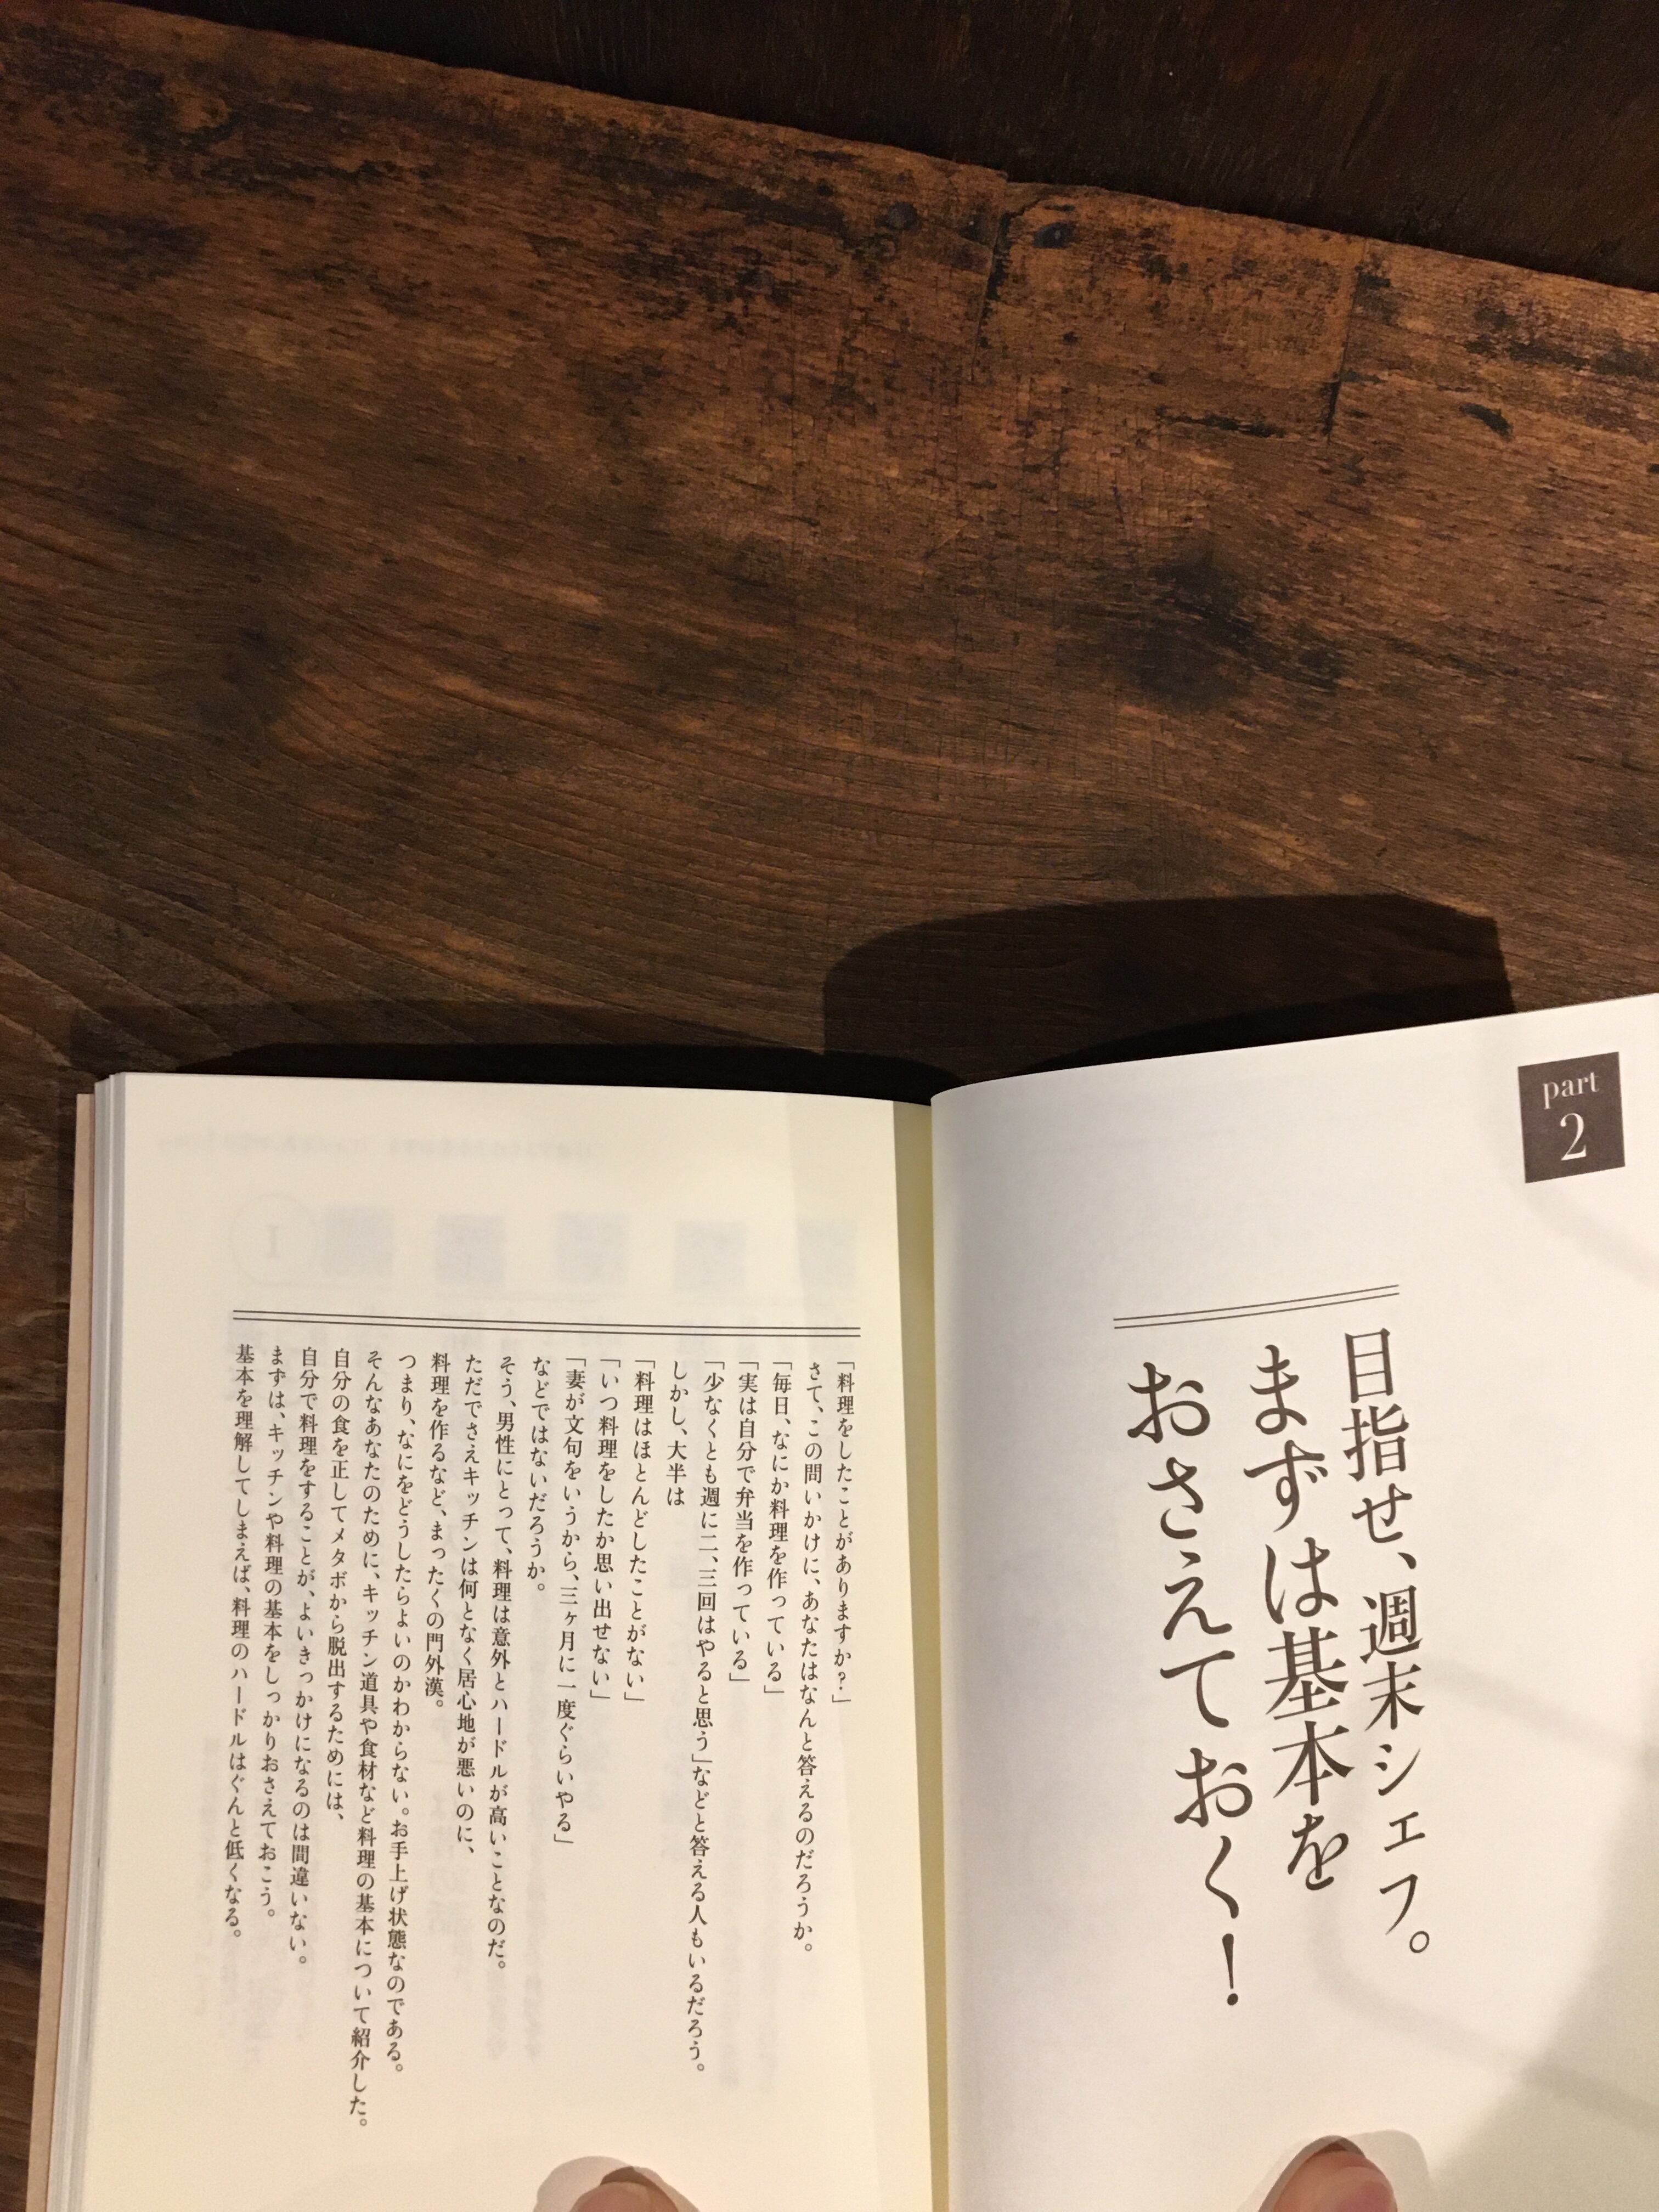 part
2
目指せ、週末シェフ。
まずは基本を
おさえておく！
「料理をしたことがありますか？」
さて、この問いかけに、あなたはなんと答えるのだろうか。
「毎日、なにか料理を作っている」
「実は自分で弁当を作っている」
「少なくとも週に二、三回はやると思う」などと答える人もいるだろう。
しかし、大半は
「料理はほとんどしたことがない」
「いつ料理をしたか思い出せない」
「妻が文句をいうから、三ヶ月に一度ぐらいやる」
などではないだろうか。
そう、男性にとって、料理は意外とハードルが高いことなのだ。
ただでさえキッチンは何となく居心地が悪いのに、
料理を作るなど、まったくの門外漢。
つまり、なにをどうしたらよいのかわからない。お手上げ状態なのである。
そんなあなたのために、キッチン道具や食材など料理の基本について紹介した。
自分の食を正してメタボから脱出するためには、
自分で料理をすることが、よいきっかけになるのは間違いない。
まずは、キッチンや料理の基本をしっかりおさえておこう。
基本を理解してしまえば、料理のハードルはぐんと低くなる。